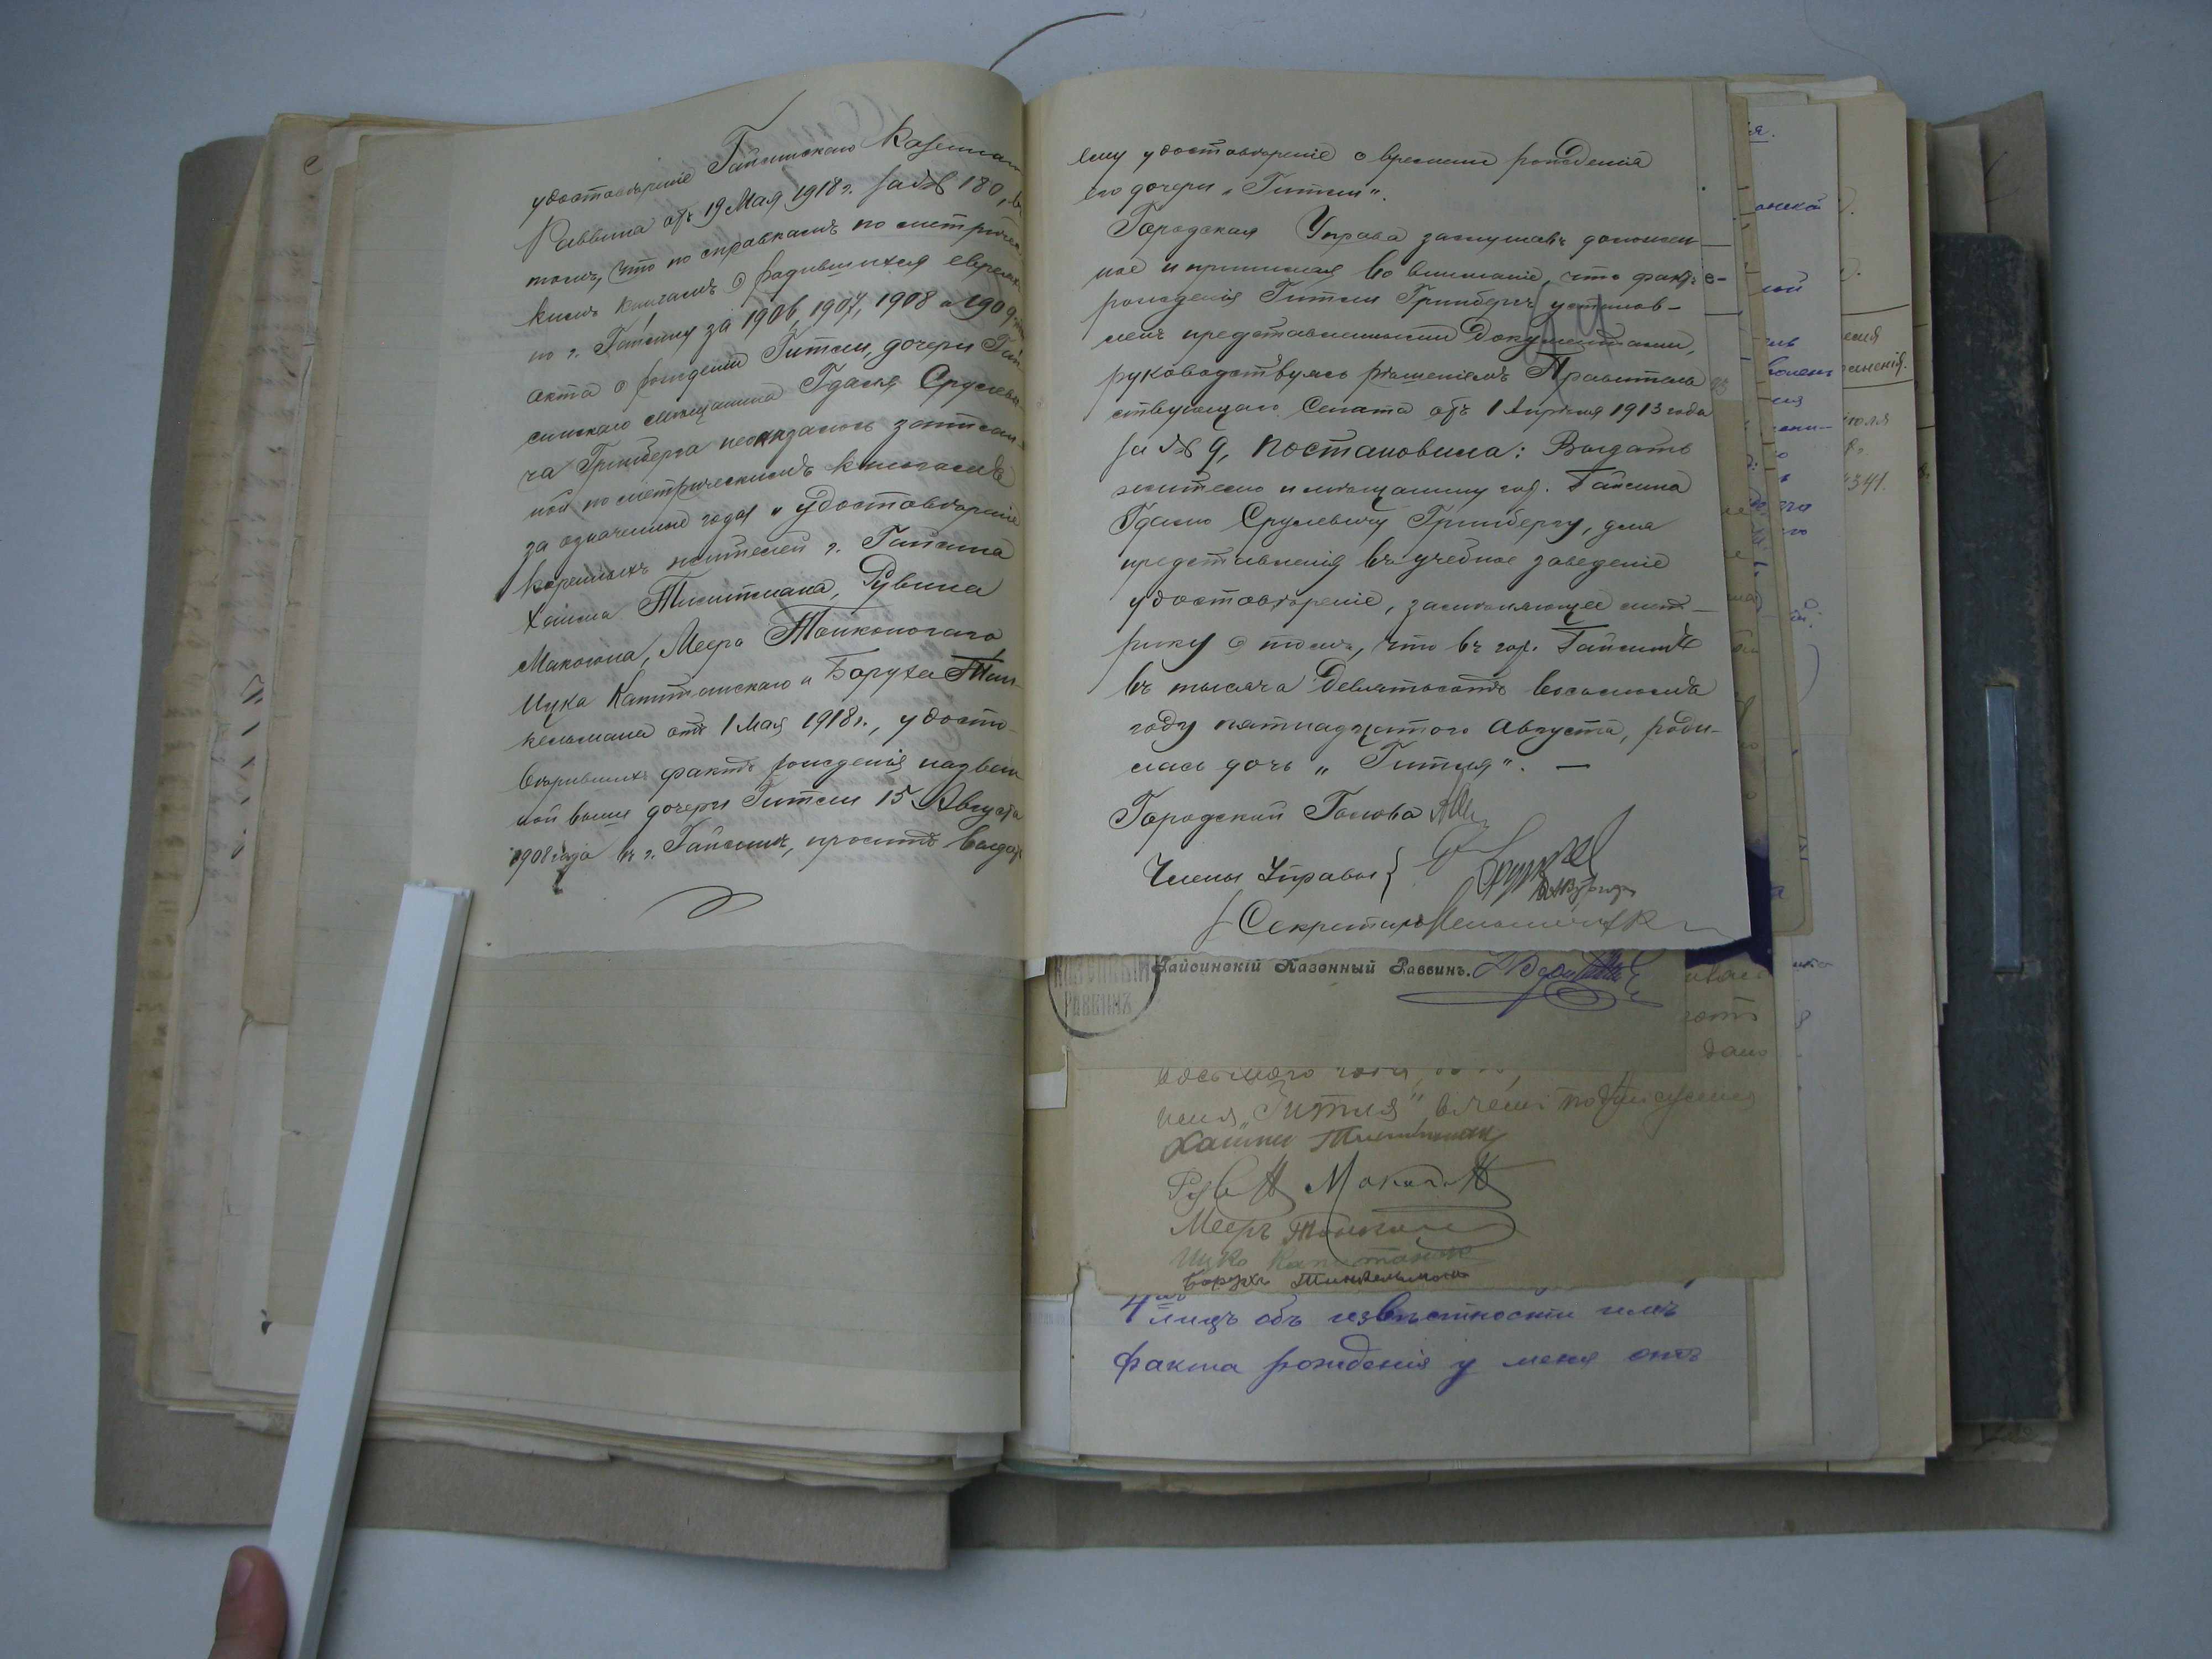 удостовѣреніе Гайсинскаго Казеннаго
Раввина отъ 19 Мая 1918 г. за № 180, въ
томъ, что по справкамъ по метричес-
кимъ книгамъ о родившихся евреяхъ
по г. Гайсину за 1906, 1907, 1908 и 1909
акта о рожденіи Гитли, дочери Гай-
синскаго мѣщанина Гдаля Срулеви-
ча Гринберга неоказалось записан-
ной по метрическимъ книгамъ
за означенные года и удостовѣреніе
коренныхъ жителей г. Гайсина
Хаима Тиситмана, Рувина
Макогона, Меера Тонконогаго,
Ицка Капитанскаго и Боруха Тин-
кельмана отъ 1 Мая 1918 г., удосто-
вѣрившихъ фактъ рожденія назван-
ной выше дочери Гитли 15 Августа
1908 года въ г. Гайсинѣ, проситъ выдать
ему удостовѣреніе о времени рожденія
его дочери „Гитли".
Городская Управа заслушавъ доложен-
ное и принимая во вниманіе, что фактъ
рожденія Гитли Гринбергъ установ-
ленъ представленными документами,
руководствуясь рѣшеніемъ Правитель
ствующаго Сената отъ 1 Апрѣля 1913 года
за № 9, постановила: Выдать
жителю и мѣщанину гор. Гайсина
Гдалю Срулевичу Гринбергу, для
представленія въ учебное заведеніе
удостовѣреніе, замѣняющее мет-
рику о томъ, что въ гор. Гайсинѣ
въ тысяча девятьсотъ восьмомъ
году пятнадцатого Августа, роди-
лась дочь „Гитля". —
Городской Голова
Члены Управы {
Секретарь
Гайсинскій Казенный Раввинъ.
КАЗЕННЫЙ
РАВВИНЪ
восьмого года,
имя „Гитля", въ чемъ подписуемся
Хаимъ
Рувин Макогон
Мееръ Тонкон
Ицко Капитанск
Борухъ Тинкельманъ
4хъ лицъ объ извѣстности имъ
факта рожденія у меня отъ
4341.